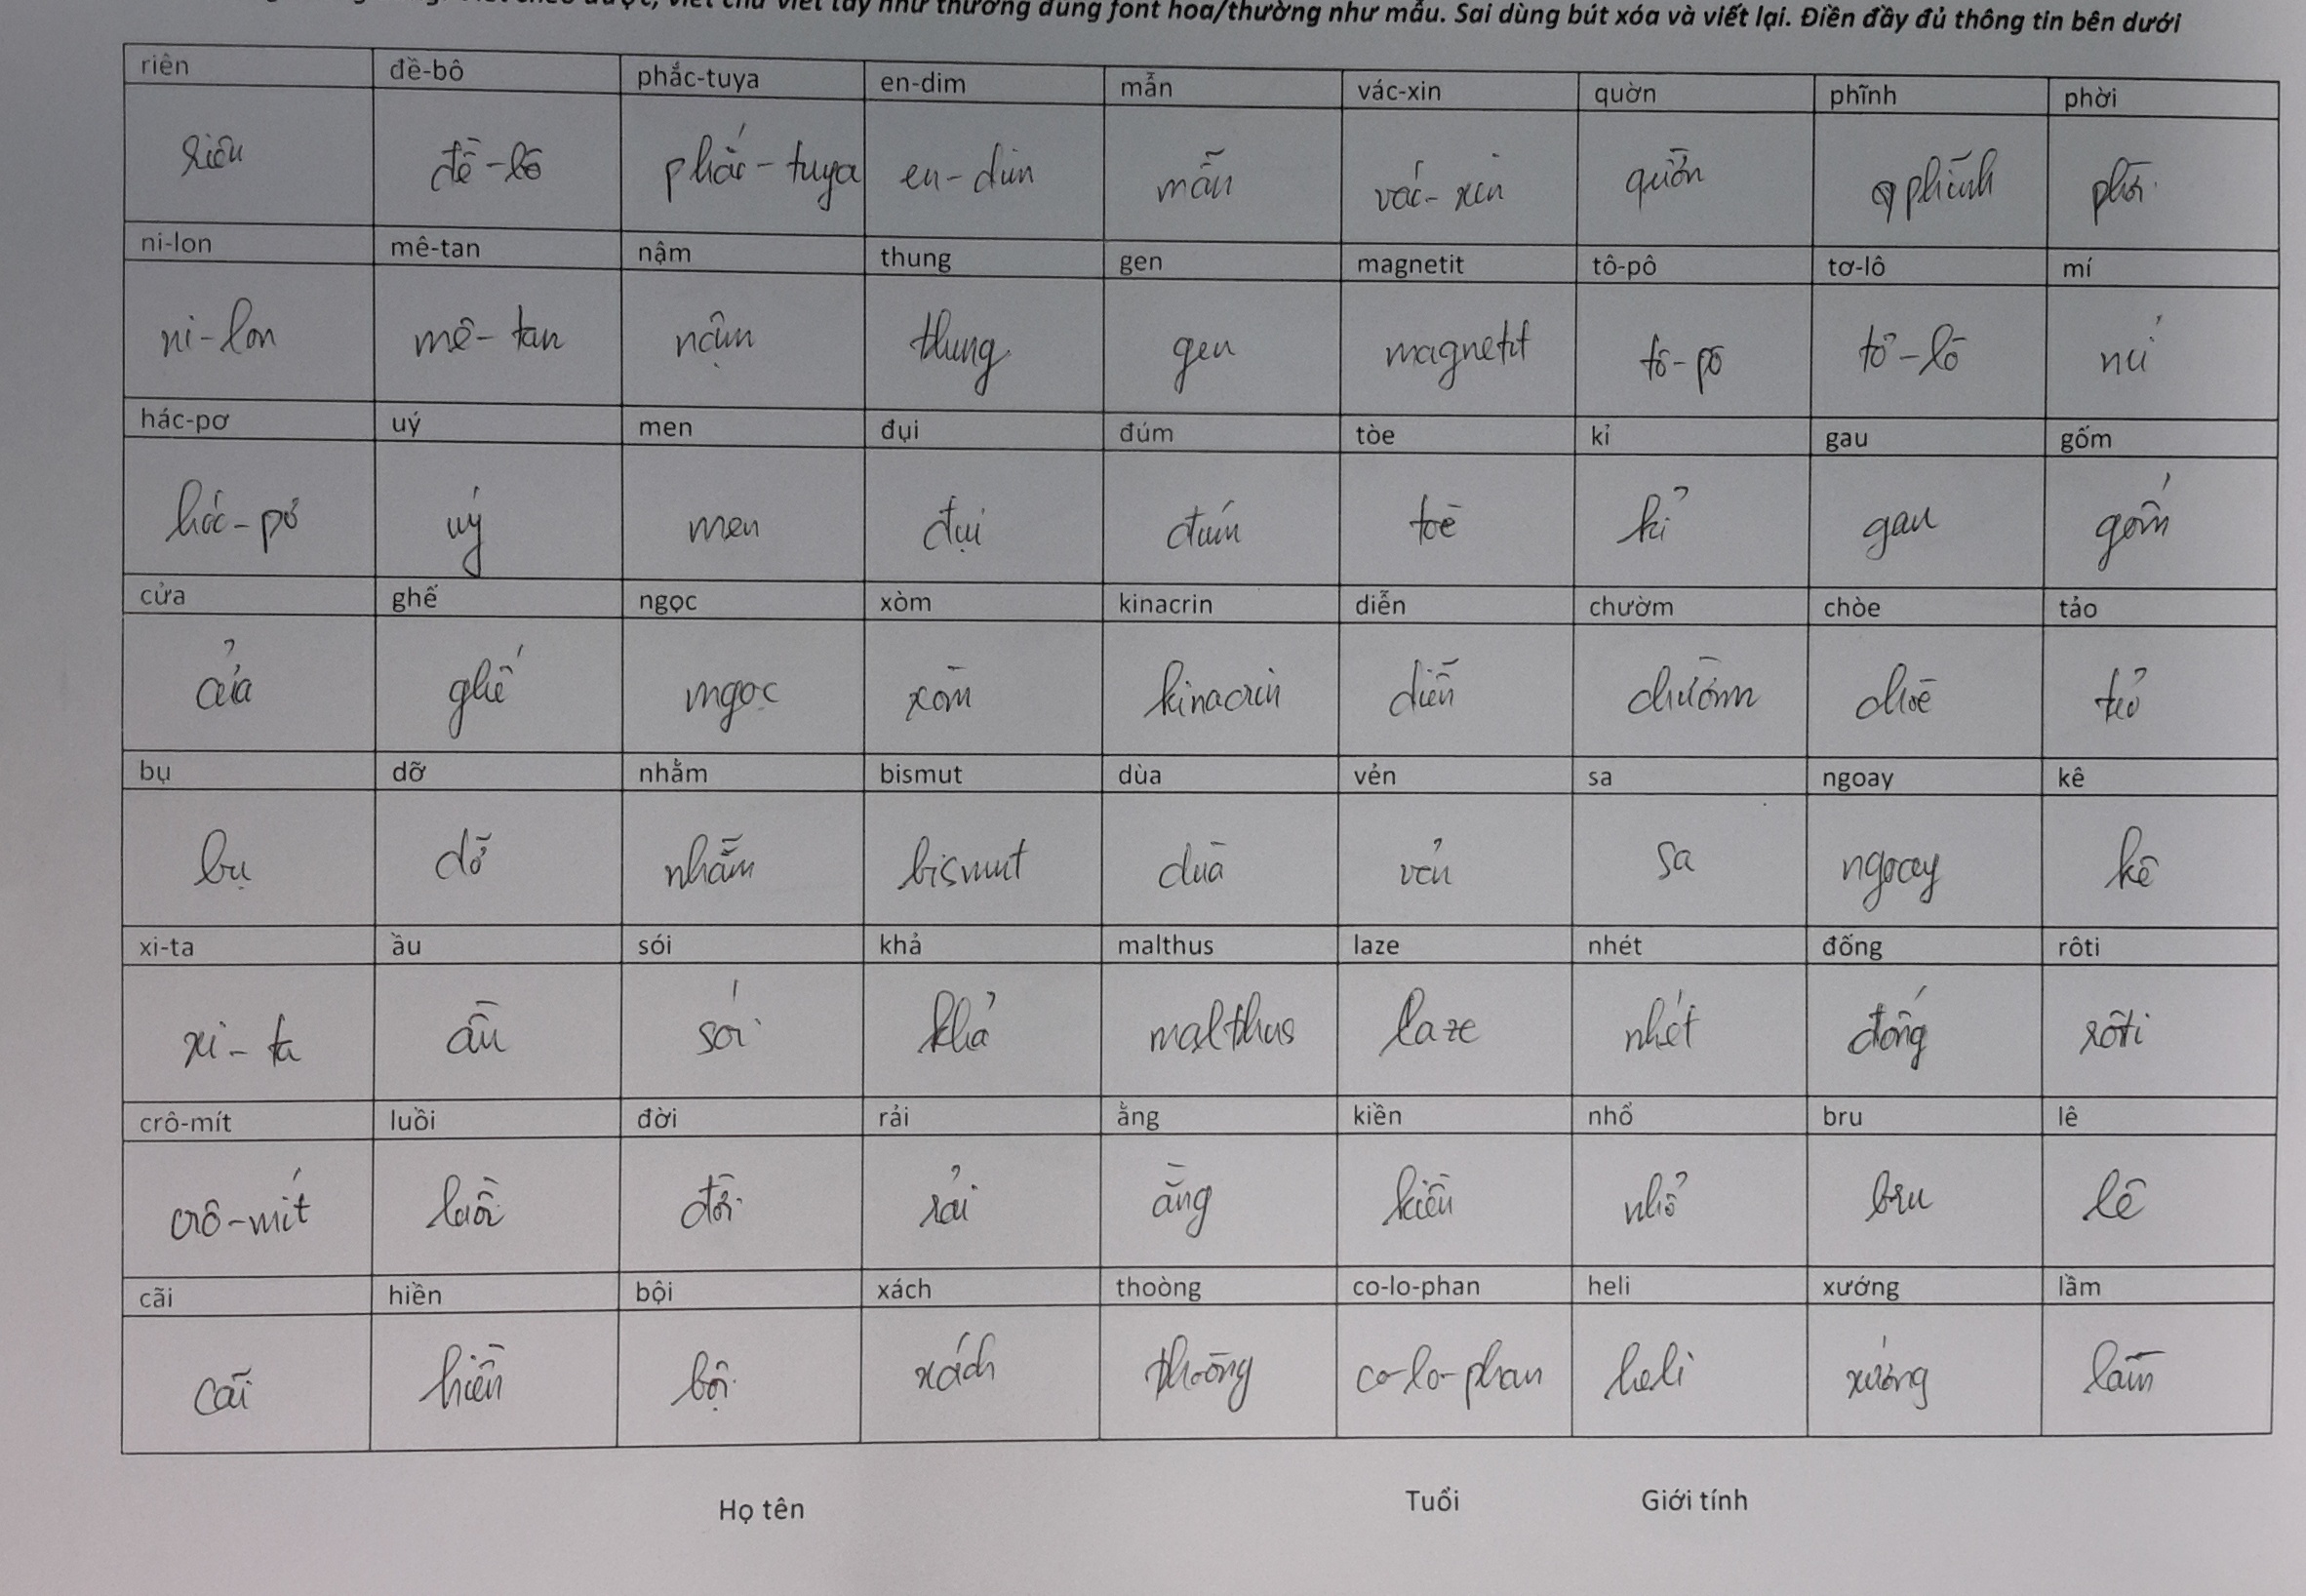 viết chữ viết tay như thường dùng font hoa/thường như mẫu. Sai dùng bút xóa và viết lại. Điền đầy đủ thông tin bên dưới
riên đề-bô phắc-tuya en-dim mẫn vác-xin quờn phĩnh phời
riên đề-bô phắc-tuya en-dim mẫn vác-xin quờn phĩnh phời
ni-lon mê-tan nậm thung gen magnetit tô-pô tơ-lô mí
ni-lon mê-tan nậm thung gen magnetit tô-pô tơ-lô mí
hác-pơ uý men đụi đúm tòe kỉ gau gốm
hác-pơ uý men đụi đúm tòe kỉ gau gốm
cửa ghế ngọc xòm kinacrin diễn chườm chòe tảo
cửa ghế ngọc xòm kinacrin diễn chườm chòe
bụ dỡ nhằm bismut dùa vẻn sa ngoay kê
bụ dỡ nhằm bismut dùa vẻn sa ngoay kê
xi-ta ầu sói khả malthus laze nhét đống rôti
xi-ta ầu sói khả malthus laze nhét đống rôti
crô-mít luồi đời rải ằng kiền nhổ bru lê
crô-mít luồi đời rải ằng kiền nhổ bru lê
cãi hiền bội xách thoòng co-lo-phan heli xướng lầm
cãi hiền bội xách thoòng co-lo-phan heli xướng lầm
Họ tên Tuổi Giới tính